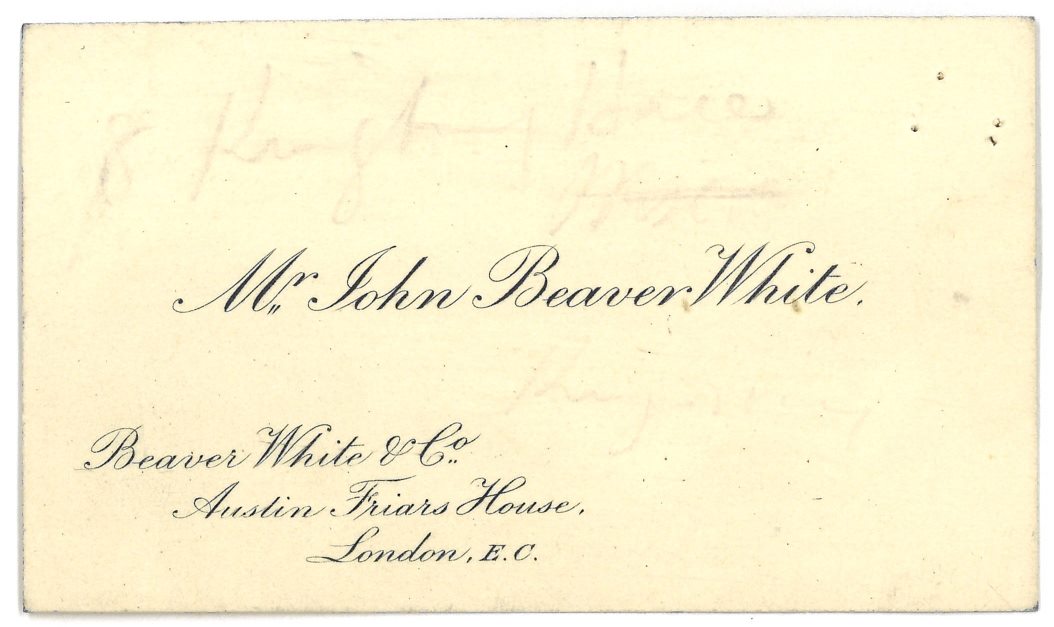 Mr. John Beaver White.
Beaver White & Co.
Austin Friars House.
London, E.C.